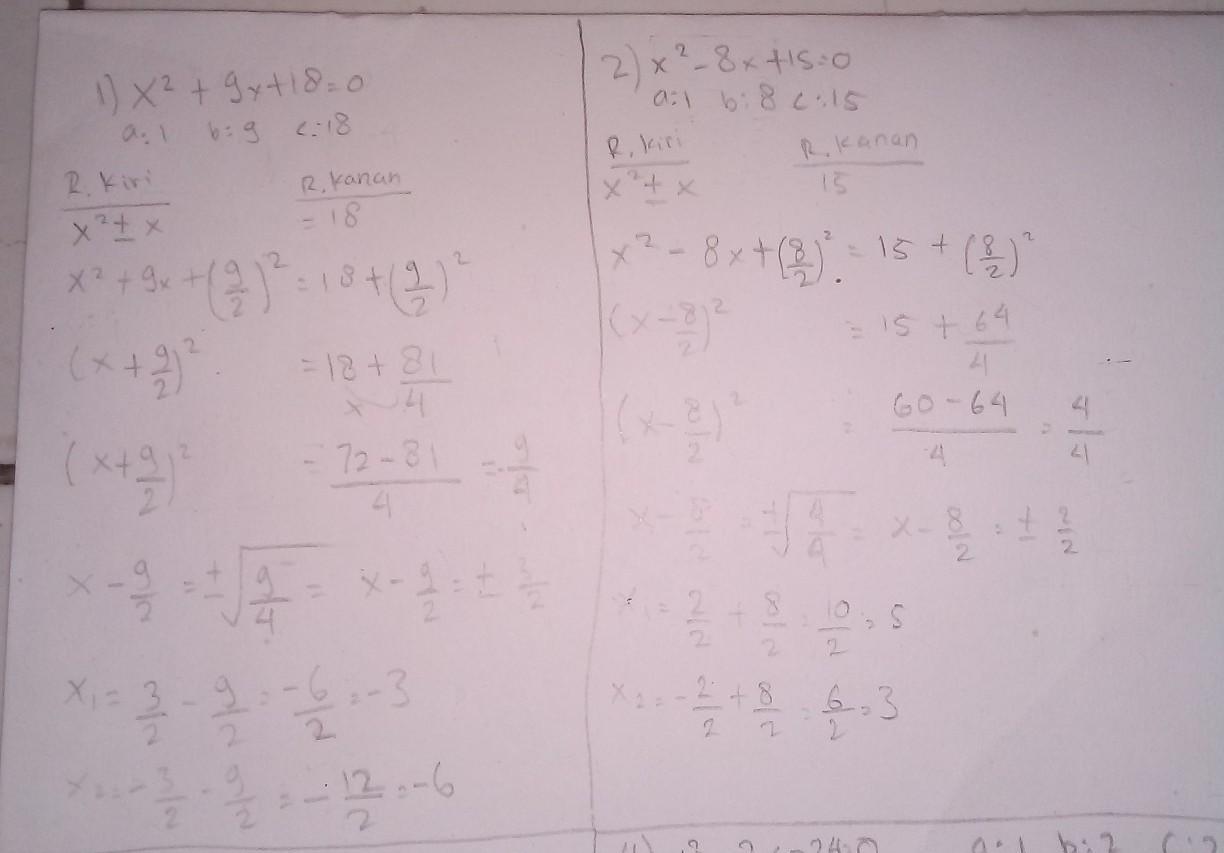 1) x² + 9x+18=0
a:1 b=9 c:18
R. Kiri R. Kanan
x² ± x = 18
x² + 9x + (9/2)² = 18 + (9/2)²
(x + 9/2)² = 18 + 81/4
(x + 9/2)² = 72 - 81/4 = 9/4
x - 9/2 = ± √9/4 = x - 9/2 = ± 3/2
x₁ = 3/2 - 9/2 = -6/2 = -3
x₂ = -3/2 - 9/2 = -12/2 = -6
2) x² - 8x +15=0
a:1 b:8 c:15
R. Kiri R. Kanan
x² ± x 15
x² - 8x + (8/2)² = 15 + (8/2)²
(x - 8/2)² = 15 + 64/4
(x - 8/2)² = 60 - 64/4 = 4/4
x - 8/2 = ± √4/4 = x - 8/2 = ± 2/2
x₁ = 2/2 + 8/2 = 10/2 = 5
x₂ = -2/2 + 8/2 = 6/2 = 3